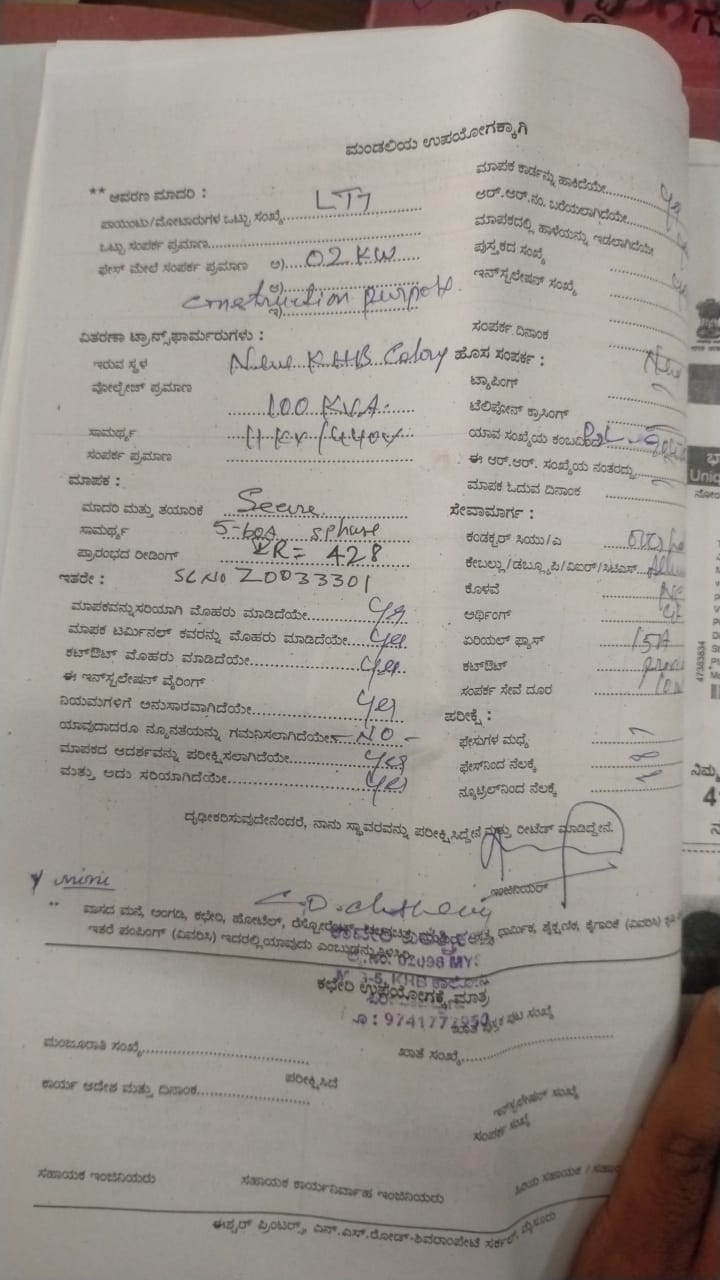 ಮಂಡಲಿಯ ಉಪಯೋಗಕ್ಕಾಗಿ
** ಆವರಣ ಮಾದರಿ :
ಪಾಯಿಂಟು/ಮೋಟಾರುಗಳ ಒಟ್ಟು ಸಂಖ್ಯೆ......... LT7
ಒಟ್ಟು ಸಂಪರ್ಕ ಪ್ರಮಾಣ.........
ಫೇಸ್ ಮೇಲೆ ಸಂಪರ್ಕ ಪ್ರಮಾಣ ಅ)...02 KW
ಆ)
construction purpose.
ಇ)
ವಿತರಣಾ ಟ್ರಾನ್ಸ್‌ಫಾರ್ಮರುಗಳು :
ಇರುವ ಸ್ಥಳ New KHB Colony
ವೋಲ್ಟೇಜ್ ಪ್ರಮಾಣ
100 KVA
ಸಾಮರ್ಥ್ಯ 11 KV/440V
ಸಂಪರ್ಕ ಪ್ರಮಾಣ
ಮಾಪಕ :
ಮಾದರಿ ಮತ್ತು ತಯಾರಿಕೆ Secure
ಸಾಮರ್ಥ್ಯ 5-60A phase
ಪ್ರಾರಂಭದ ರೀಡಿಂಗ್ IR= 428
ಇತರೇ : SL NO Z0033301
ಮಾಪಕವನ್ನು ಸರಿಯಾಗಿ ಮೊಹರು ಮಾಡಿದೆಯೇ......... Yes
ಮಾಪಕ ಟರ್ಮಿನಲ್ ಕವರನ್ನು ಮೊಹರು ಮಾಡಿದೆಯೇ... Yes
ಕಟ್‌ಔಟ್ ಮೊಹರು ಮಾಡಿದೆಯೇ......... Yes
ಈ ಇನ್‌ಸ್ಟಲೇಷನ್ ವೈರಿಂಗ್
ನಿಯಮಗಳಿಗೆ ಅನುಸಾರವಾಗಿದೆಯೇ......... Yes
ಯಾವುದಾದರೂ ನ್ಯೂನತೆಯನ್ನು ಗಮನಿಸಲಾಗಿದೆಯೇ - NO -
ಮಾಪಕದ ಆದರ್ಶವನ್ನು ಪರೀಕ್ಷಿಸಲಾಗಿದೆಯೇ......... Yes
ಮತ್ತು ಅದು ಸರಿಯಾಗಿದೆಯೇ......... Yes
ಮಾಪಕ ಕಾರ್ಡನ್ನು ಹಾಕಿದೆಯೇ.........
ಆರ್.ಆರ್.ನಂ. ಬರೆಯಲಾಗಿದೆಯೇ.........
ಮಾಪಕದಲ್ಲಿ ಹಾಳೆಯನ್ನು ಇಡಲಾಗಿದೆಯೇ
ಪುಸ್ತಕದ ಸಂಖ್ಯೆ
ಇನ್‌ಸ್ಟಲೇಷನ್ ಸಂಖ್ಯೆ
ಸಂಪರ್ಕ ದಿನಾಂಕ
ಹೊಸ ಸಂಪರ್ಕ : New
ಟ್ಯಾಪಿಂಗ್
ಟೆಲಿಫೋನ್ ಕ್ರಾಸಿಂಗ್
ಯಾವ ಸಂಖ್ಯೆಯ ಕಂಬದಿಂದ
ಈ ಆರ್.ಆರ್. ಸಂಖ್ಯೆಯ ನಂತರದ್ದು
ಮಾಪಕ ಓದುವ ದಿನಾಂಕ
ಸೇವಾಮಾರ್ಗ :
ಕಂಡಕ್ಟರ್ ಸಿಯು/ಎ
ಕೇಬಲ್ಲು/ಡಬ್ಲ್ಯೂಪಿ/ವಿಐರ್/ಸಿಟಿಎಸ್
ಕೊಳವೆ
ಅರ್ಥಿಂಗ್
ಏರಿಯಲ್ ಫ್ಯೂಸ್ 15A
ಕಟ್‌ಔಟ್
ಸಂಪರ್ಕ ಸೇವೆ ದೂರ
ಪರೀಕ್ಷೆ :
ಫೇಸುಗಳ ಮಧ್ಯೆ
ಫೇಸ್‌ನಿಂದ ನೆಲಕ್ಕೆ
ನ್ಯೂಟ್ರಲ್‌ನಿಂದ ನೆಲಕ್ಕೆ
ದೃಢೀಕರಿಸುವುದೇನೆಂದರೆ, ನಾನು ಸ್ಥಾವರವನ್ನು ಪರೀಕ್ಷಿಸಿದ್ದೇನೆ ಮತ್ತು ರೀಟೆಡ್ ಮಾಡಿದ್ದೇನೆ.
ಇಂಜಿನಿಯರ್
** ವಾಸದ ಮನೆ, ಅಂಗಡಿ, ಕಛೇರಿ, ಹೋಟೆಲ್, ಧಾರ್ಮಿಕ, ಶೈಕ್ಷಣಿಕ, ಕೈಗಾರಿಕೆ (ವಿವರಿಸಿ)
ಇತರೆ ಪಂಪಿಂಗ್ (ವಿವರಿಸಿ) ಇದರಲ್ಲಿ ಯಾವುದು ಎಂಬುದನ್ನು ತಿಳಿಸಿ
ಕಛೇರಿ ಉಪಯೋಗಕ್ಕೆ ಮಾತ್ರ
ಮಂಜೂರಾತಿ ಸಂಖ್ಯೆ.........
ಖಾತೆ ಸಂಖ್ಯೆ.........
ಪರೀಕ್ಷಿಸಿದೆ
ಕಾರ್ಯ ಆದೇಶ ಮತ್ತು ದಿನಾಂಕ.........
ಇನ್‌ಸ್ಟಲೇಷನ್ ಸಂಖ್ಯೆ
ಸಂಪರ್ಕ ಸಂಖ್ಯೆ
ಸಹಾಯಕ ಇಂಜಿನಿಯರು
ಸಹಾಯಕ ಕಾರ್ಯನಿರ್ವಾಹ ಇಂಜಿನಿಯರು
ಈಶ್ವರ್ ಪ್ರಿಂಟರ್ಸ್, ಎನ್.ಎಸ್.ರೋಡ್-ಶಿವರಾಂಪೇಟೆ ಸರ್ಕಲ್, ಮೈಸೂರು
47383834